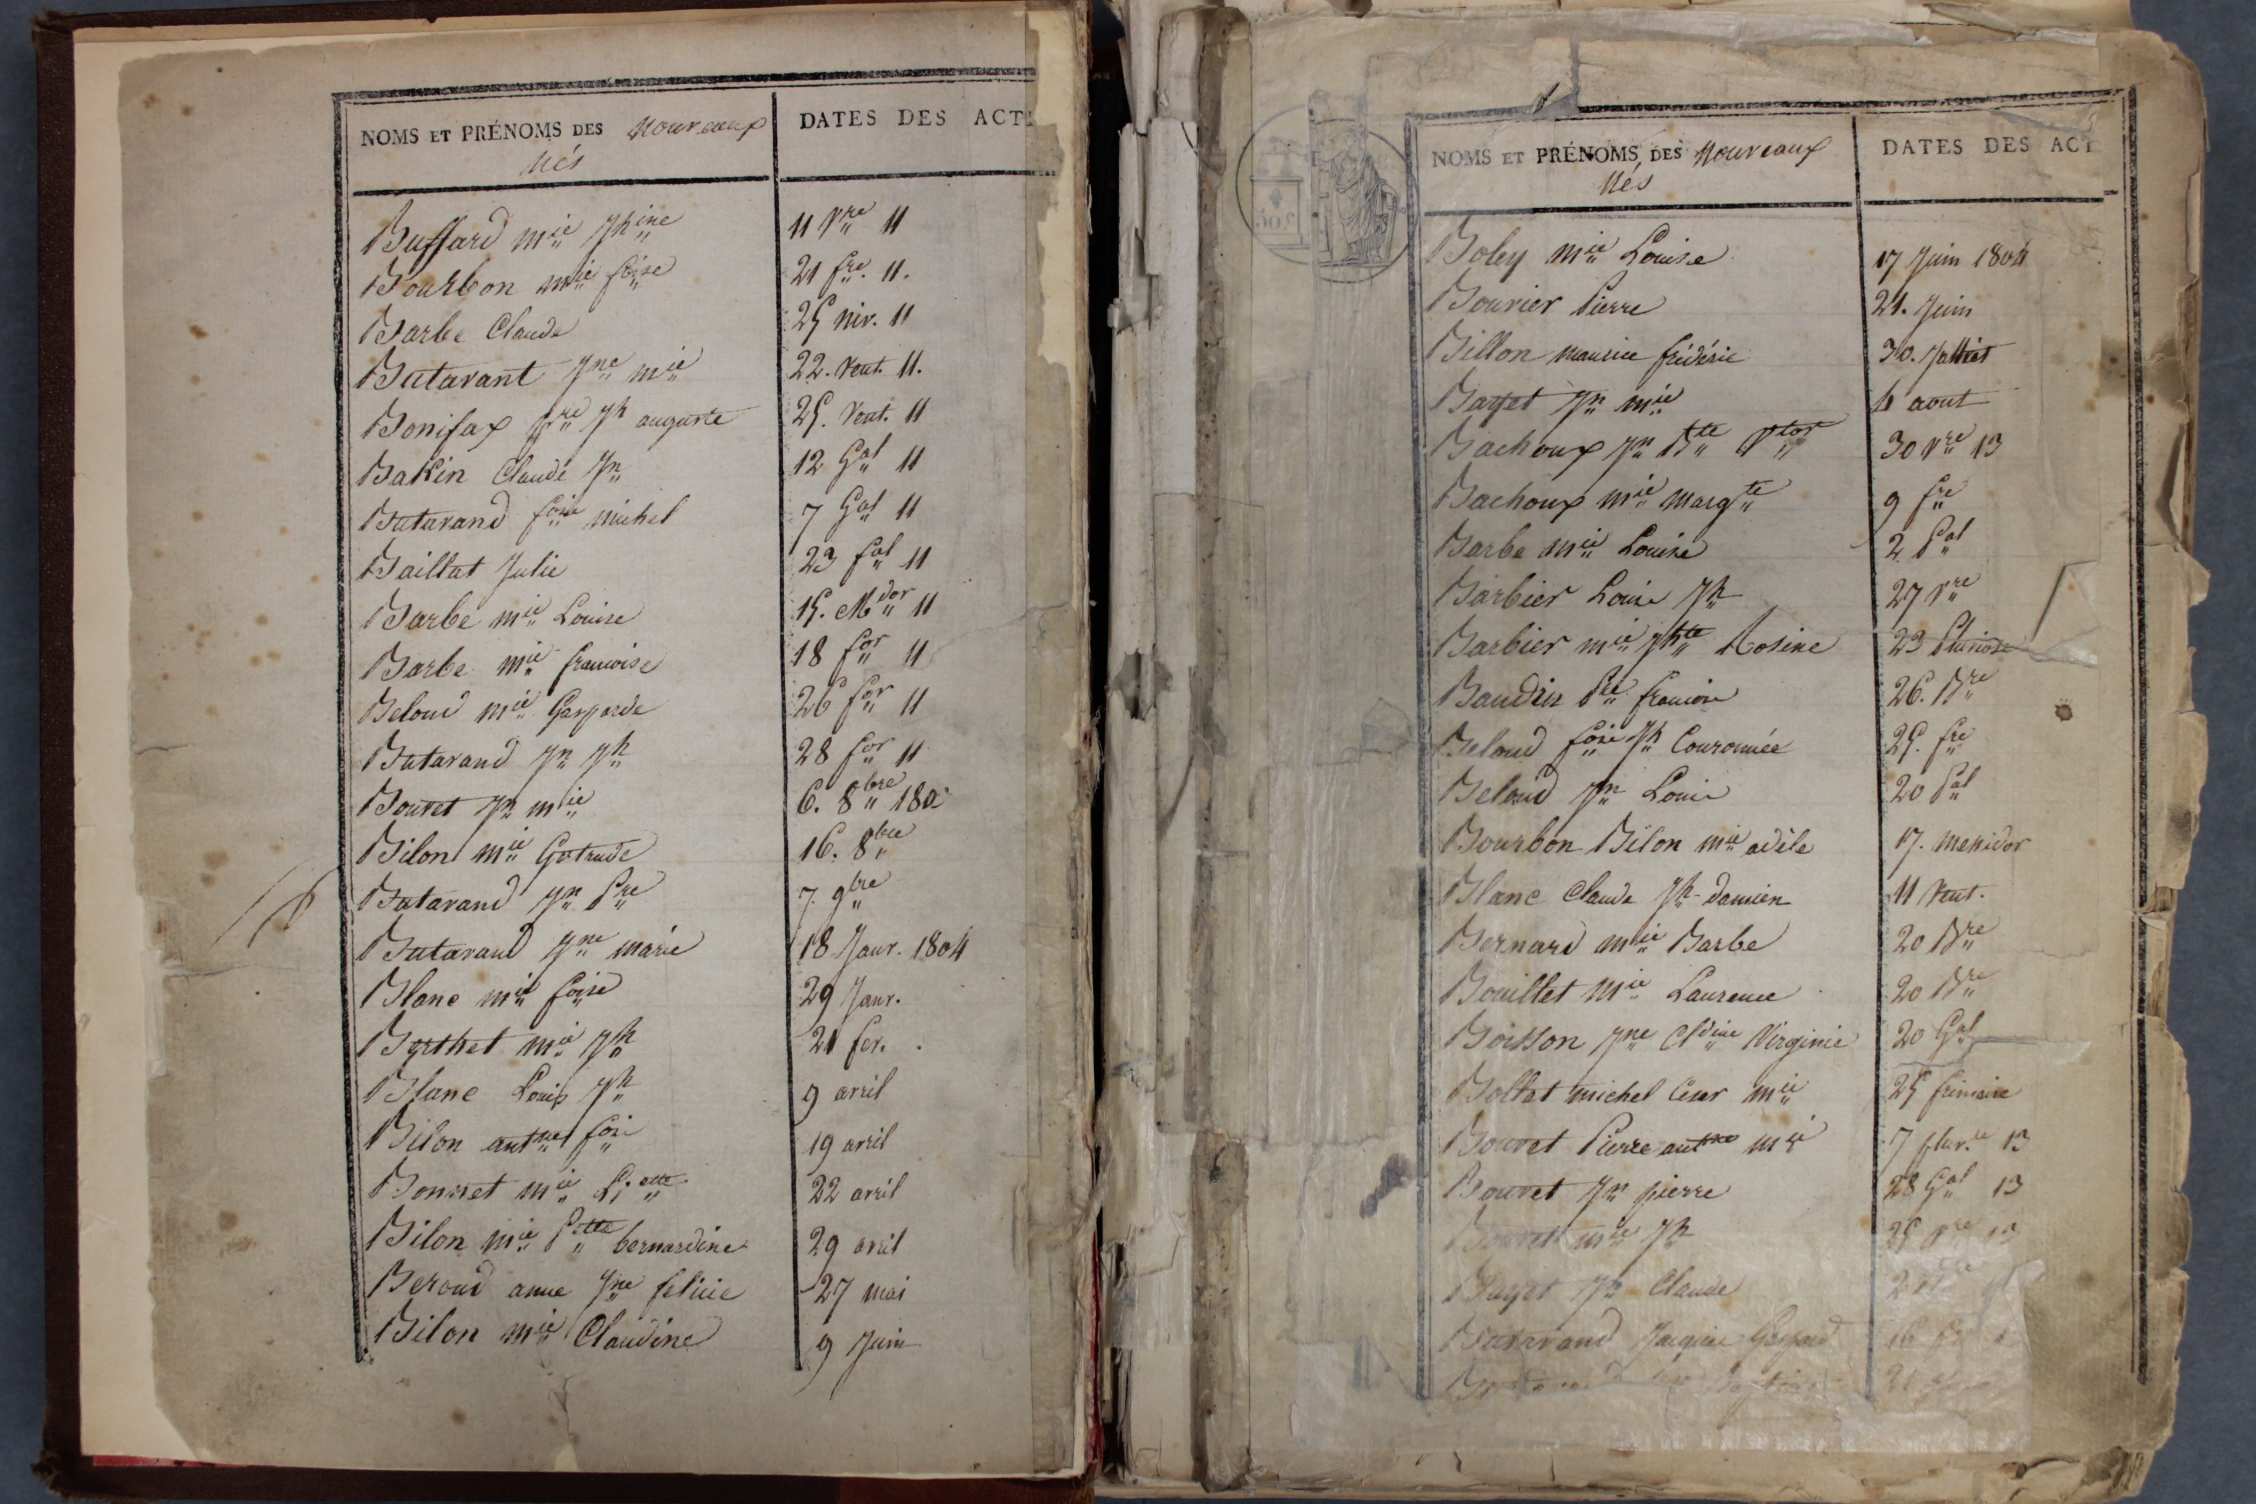 NOMS ET PRÉNOMS DES Nouveaux
Nés
DATES DES ACT
Buffard mie Jhine 11 Vre 11
Bourbon mie foise 21 fre. 11.
Barbe Claude 25 niv. 11
Batavant Jne mie 22. Vent. 11.
Bonifax pre Jh auguste 25. Vent. 11
Bakin Claude Jn 12 Gal 11
Batarand fois michel 7 Gal 11
Baillat Julie 23 fal 11
Barbe mie Louise 15. Mdor 11
Barbe mie francoise 18 for 11
Beloud mie Gasparde 26 for 11
Batarand Jn Jh 28 for 11
Bouvet Jn mie 6. 8bre 180
Bilon mie Gertrude 16. 8bre
Batarand Jn Pre 7. 9bre
Batarand Jne marie 18 Janr. 1804
Blanc mie foise 29 Janr.
Berthet mie Jh 21 fev.
Blanc Louis Jh 9 avril
Bilon antne fois 19 avril
Bonnet mie 22 avril
Bilon mie bernardine 29 avril
Beroud anne Jne felicie 27 mai
Bilon mie Claudine 9 Juin
NOMS ET PRÉNOMS DES Nouveaux
Nés
DATES DES ACT
Boley mie Louise 17 Juin 1804
Bouvier Pierre 21. Juin
Billon maurice frédéric 30. Juillet
Bayet Jn mie 6 aout
Bachoux Jn Bte Vtor 30 Vre 13
Bachoux mie margte 9 fre
Barbe mie Louise 2 Pal
Barbier Louis Jh 27 Vre
Barbier mie Jhte Rosine 23 Pluviose
Baudin Pre francois 26. Bre
Beloud fois Jh Couronnée 25. fre
Beloud Jn Louis 20 Pal
Bourbon Bilon mie adèle 17. messidor
Blanc Claude Jh damien 11 Vent.
Bernard mie Barbe 20 Bre
Bouillet mie Laurence 20 Bre
Boisson Jne Cldine Virginie 20 Gal
Bollet michel Cesar mie 25 frimaire
Bouvet Pierre antne mie 7 pluv.se 13
Bouvet Jn pierre 28 Gal 13
Bouvet mie Jh 25 Vre 13
Bayet Jn Claude
Batarand Jacques Gaspard